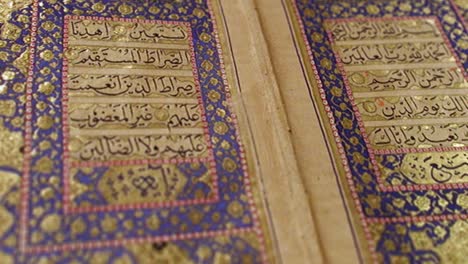 بسم الله
رب العالمين
الرحمن الرحيم
يوم الدين
نعبد واياك
نستعين اهدنا
الصراط المستقيم
صراط الذين انعمت
عليهم غير المغضوب
عليهم ولا الضالين